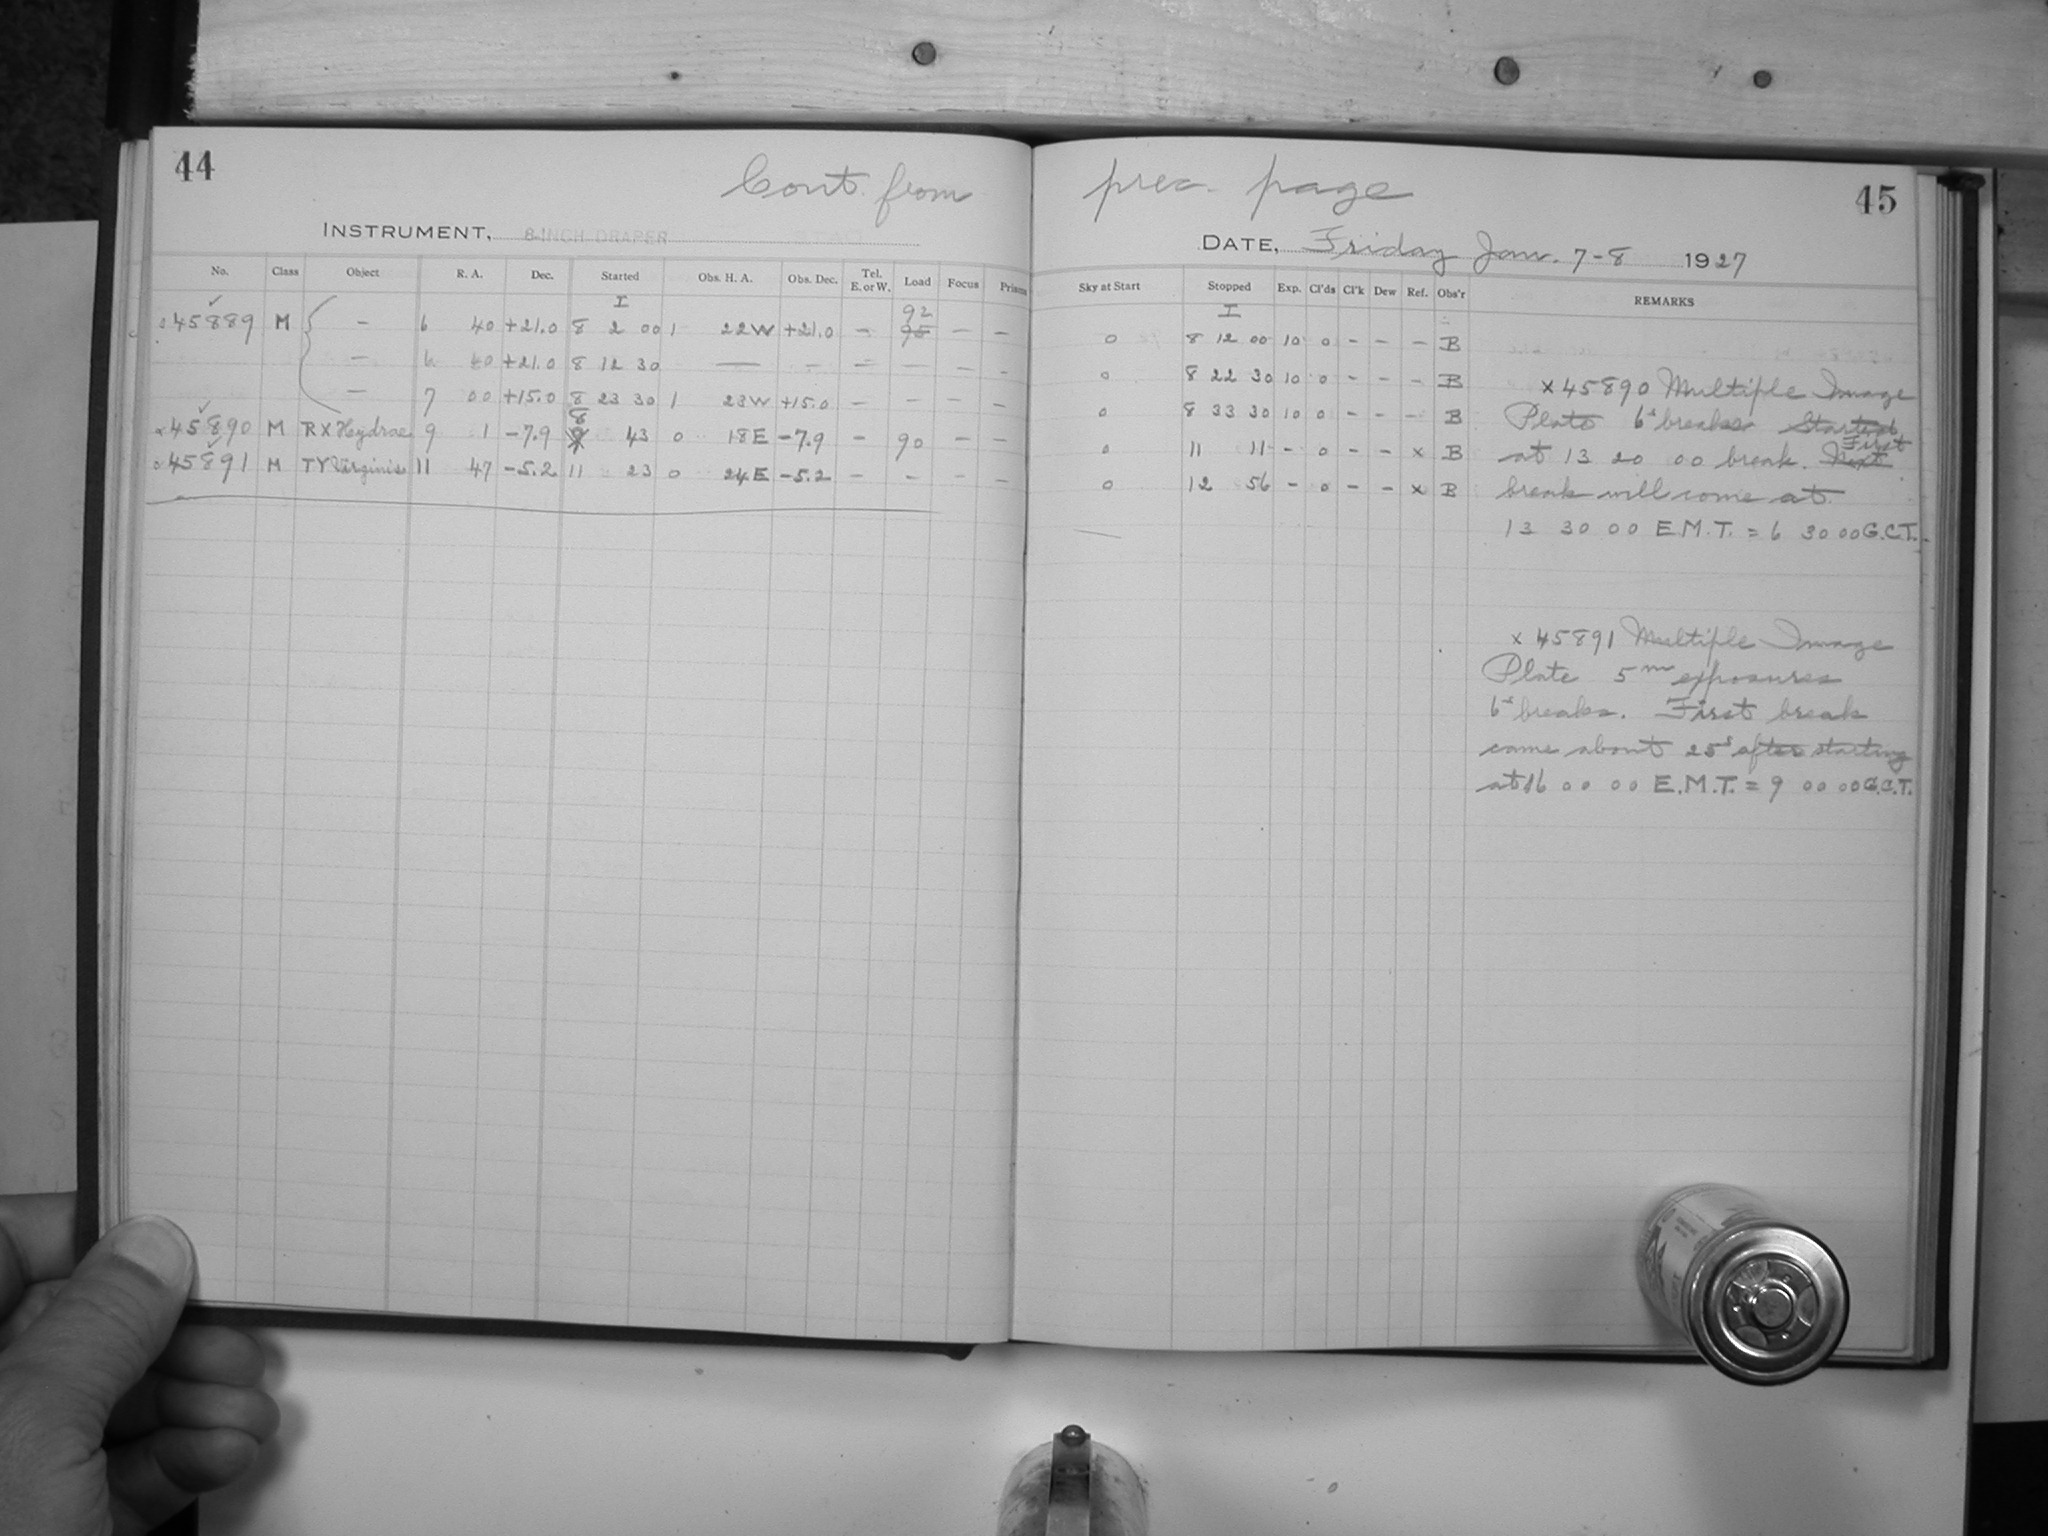 44
Cont. from prec. page
45
INSTRUMENT, 8-INCH DRAPER
DATE, Friday Jan. 7-8 1927
No. Class Object R. A. Dec. Started Obs. H. A. Obs. Dec. Tel. E. or W. Load Focus Prisms Sky at Start Stopped Exp. Cl'ds Cl'k Dew Ref. Obs'r REMARKS
I 92 I
45889 M { — 6 40 +21.0 8 2 00 1 22 W +21.0 — 95 — — 0 8 12 00 10 0 - - - B
— 6 40 +21.0 8 12 30 — — — — — - 0 8 22 30 10 0 - - - B
— 7 00 +15.0 8 23 30 1 23 W +15.0 — — — — 0 8 33 30 10 0 - - - B
45890 M RX Hydrae 9 1 -7.9 8 43 0 18 E -7.9 - 90 — — 0 11 11 - 0 - - x B
45891 M TY Virginis 11 47 -5.2 11 23 0 24 E -5.2 — - — — 0 12 56 - 0 - - x B
x 45890 Multiple Image
Plate 6s breaks Started
First
at 13 20 00 break. Next
break will come at
13 30 00 E.M.T. = 6 30 00 G.C.T.
x 45891 Multiple Image
Plate 5m exposures
6s breaks. First break
came about 25s after starting
at 16 00 00 E.M.T. = 9 00 00 G.C.T.